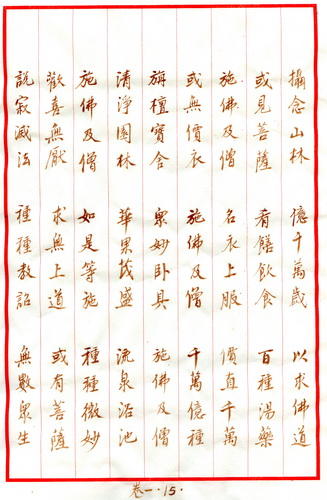 攝念山林 億千萬歲 以求佛道
或見菩薩 肴膳飲食 百種湯藥
施佛及僧 名衣上服 價直千萬
或無價衣 施佛及僧 千萬億種
旃檀寶舍 衆妙臥具 施佛及僧
清淨園林 華果茂盛 流泉浴池
施佛及僧 如是等施 種種微妙
歡喜無厭 求無上道 或有菩薩
說寂滅法 種種教詔 無數衆生
卷一·15·